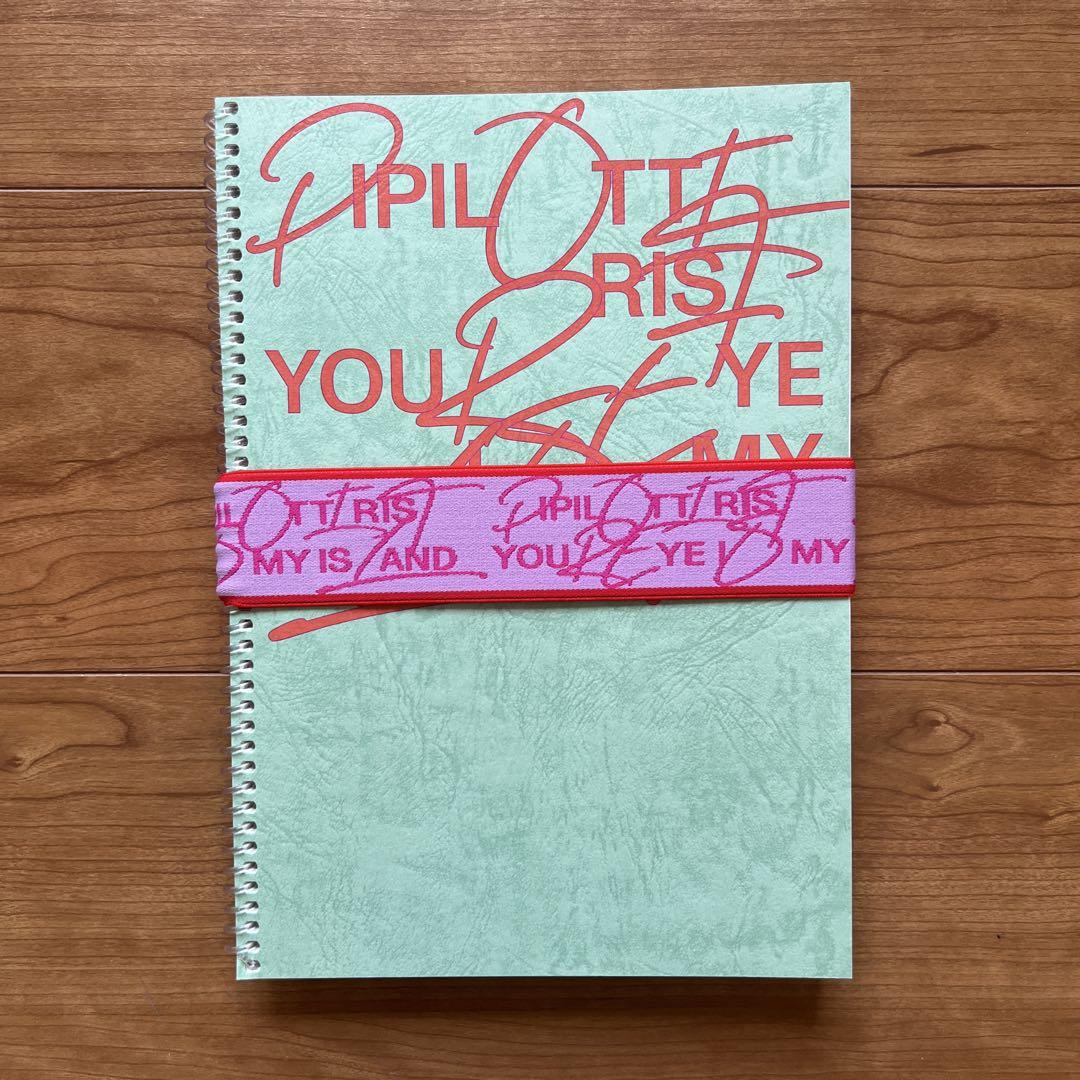 PIPILOTTI
RIST
YOUR EYE
IS MY
IL OTTI RIST
IS MY ISLAND
PIPILOTTI RIST
YOUR EYE IS MY